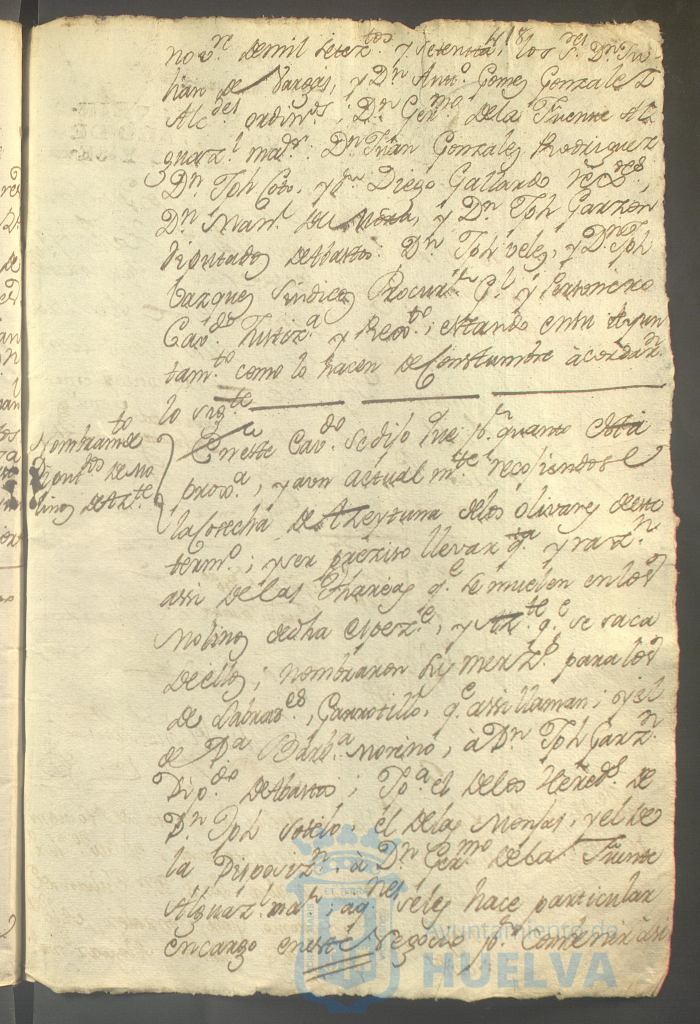 418
nov.re de mil setez.tos y setenta, los S.res D.n Ju-
lian de Vargas, y D.n Ant.o Gomez Gonzalez
Alc.des ordin.s; D.n Ger.mo de la Fuente Al-
guaz.l ma.r D.n Juan Gonzalez Rodriguez
D.n Jph Coto, y d.n Diego Gallardo reg.res,
D.n Man.l de Mora, y D.n Jph Garzon
Diputados de Abastos: D.n Jph velez, y D.n Jph
Bazquez Sindicos Procur.r G.l y Personero
Cav.do Justiz.a y Rex.to; estando en su Ayun
tam.to como lo hacen de Constumbre àcordar.n
lo sig.te
Nombram.to de
Diput.dos de Mo
linos de Az.te
En este Cav.do se dijo que p.r quanto esta
prox.a, y aun actual m.te recoliendose
la Cosecha de Azeytuna de los Olivares de este
term.o; y ser preziso llevar q.ta y raz.n
assi de las Thareas q.e se muelen en los
Molinos de dha espez.e, y Az.te q.e se saca
de ellos; nombraron sus merz.s para los
de Labrad.es, Garrotillo, q.e assi llaman; y el
de D.a Barb.a Morino, à D.n Jph Garz.n
Dip.do de Abastos; Jo.a el de los Hered.s de
D.n Jph Sotelo, el de las Monjas, y el de
la Disposiz.n, à D.n Ger.mo de la Fuente
Alguaz.l ma.r; aq.nes se les hace particular
encargo en este Negocio p.r Combenir assi
Ayuntamiento de
HUELVA